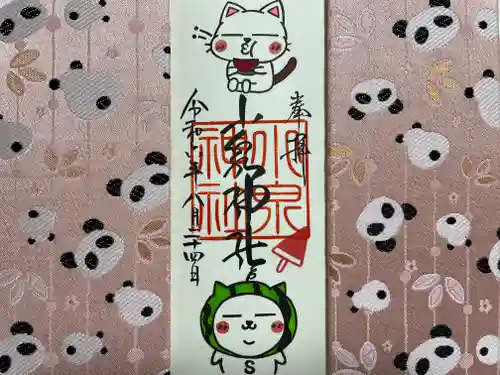 奉拝
小泉神社
小泉
神社
令和六年八月二十四日
S